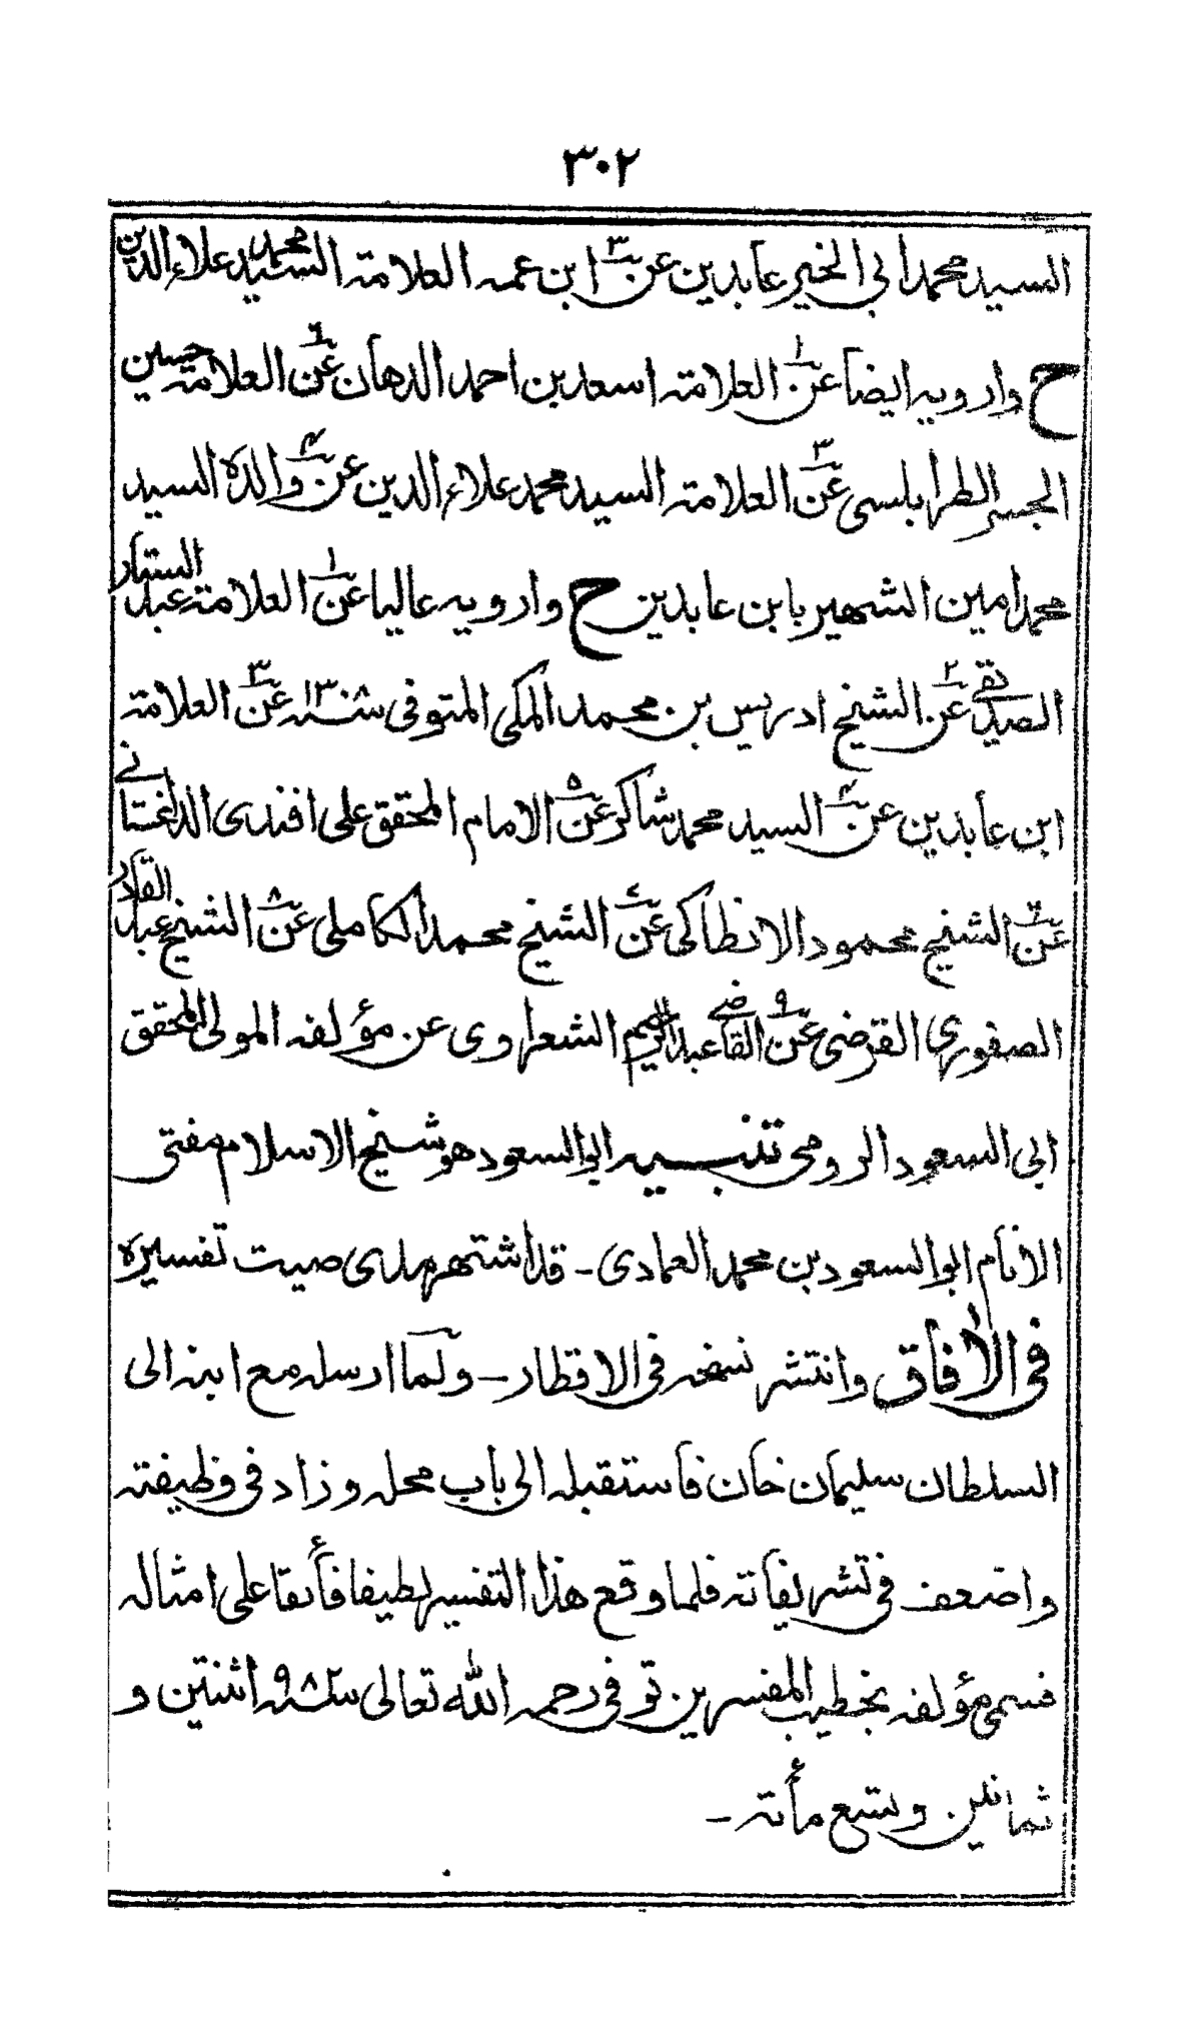 ٣٠٢
السيد محمد ابى الخير عابدين عن٣ ابن عمه العلامة السيد محمد علاء الدين
ح وارويه ايضا عن١ العلامة اسعد بن احمد الدهان عن٢ العلامة حسين
الجسر الطرابلسى عن٣ العلامة السيد محمد علاء الدين عن٤ والده السيد
محمد امين الشهير بابن عابدين ح وارويه عاليا عن١ العلامة عبد الستار
الصديقى عن٢ الشيخ ادريس بن محمد المكى المتوفى سنه ١٣٠٨ عن٣ العلامة
ابن عابدين عن٤ السيد محمد شاكر عن٥ الامام المحقق على افندى الداغستانى
عن٦ الشيخ محمود الانطاكى عن٧ الشيخ محمد الكاملى عن٨ الشيخ عبد القادر
الصفورى القرضى عن٩ القاضى عبد الرحيم الشعراوى عن مؤلفه المولى المحقق
ابى السعود الرومى تنبيه ابو السعود هو شيخ الاسلام مفتى
الانام ابو السعود بن محمد العمادى - قد اشتهر صيت تفسيره
فى الأفاق وانتشر نسخه فى الاقطار - ولما ارسله مع ابنه الى
السلطان سليمان خان فاستقبله الى باب محله وزاد فى وظيفته
واضعف فى تشريفاته فلما وقع هذا التفسير لطيفا فأئقا على امثاله
فسمى مؤلفه بخطيب المفسرين توفى رحمه الله تعالى سنه ٩٨٢ اثنتين و
ثمانين وتسع مأئة -